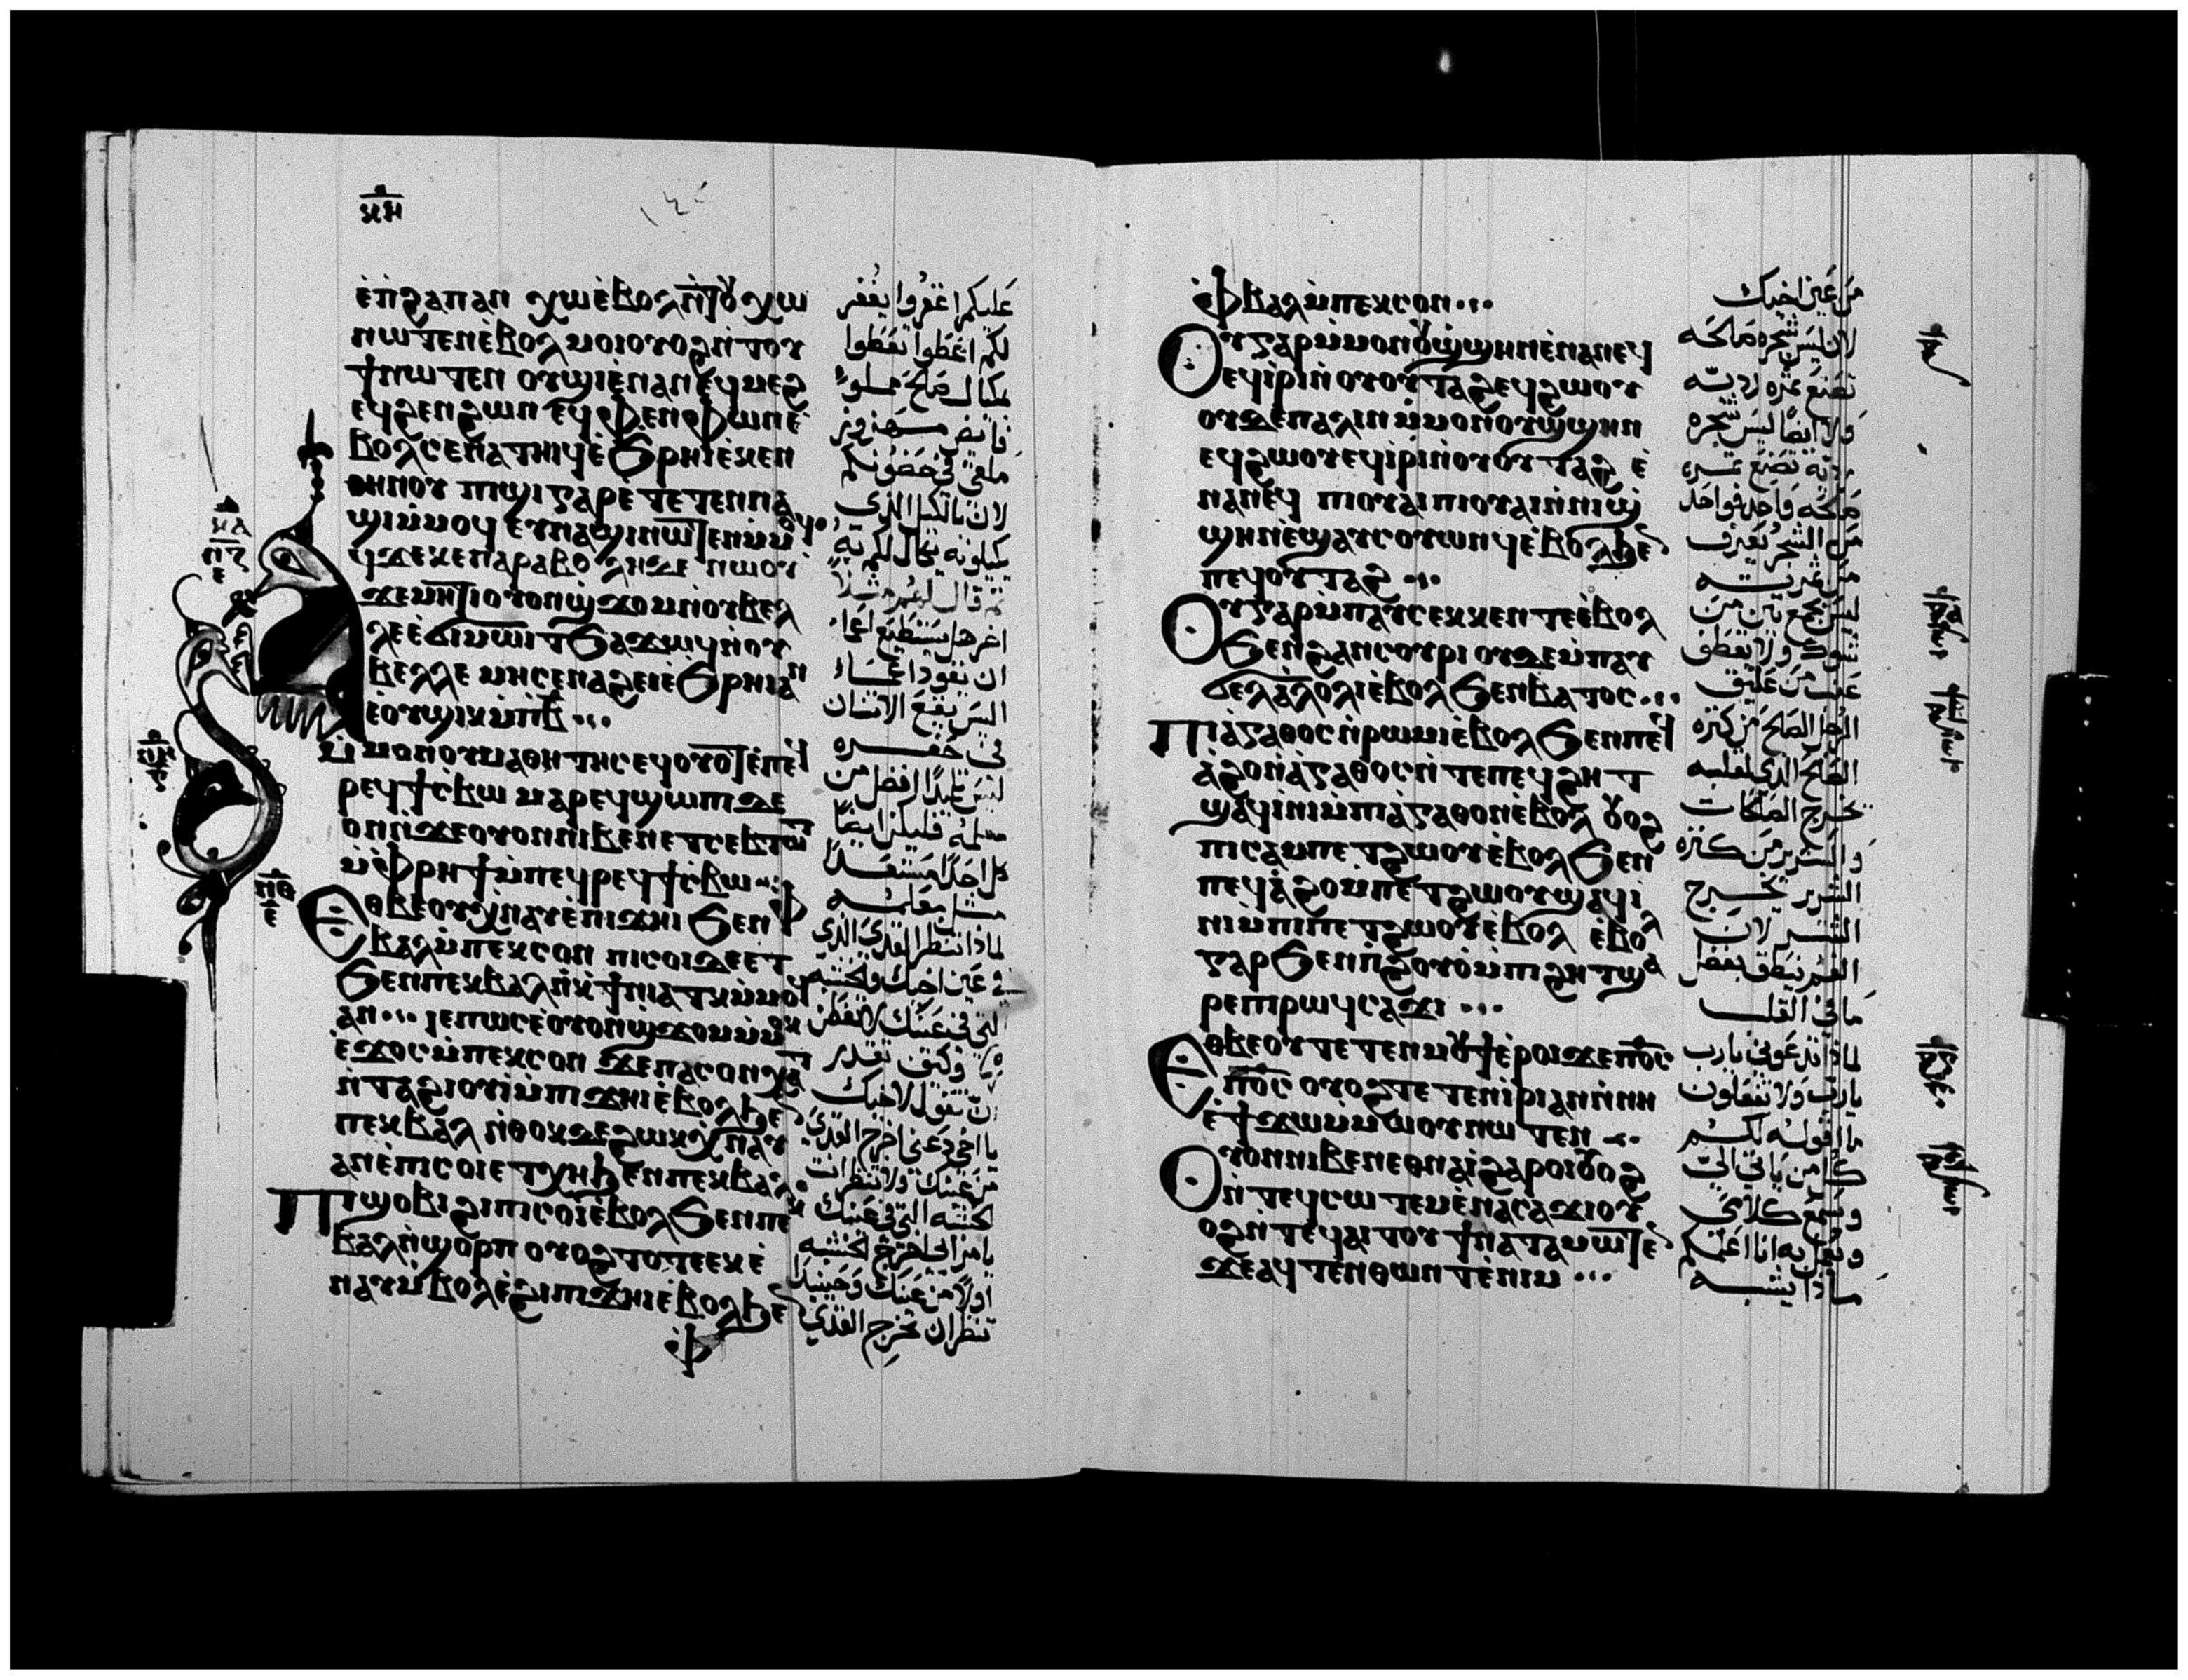 ⲕⲏ
ⲉ̀ⲛ̀ϩⲁⲡⲁⲛ ⲭⲱⲉ̀ⲃⲟⲗ
ⲛⲱⲧⲉⲛⲉ̀ⲃⲟⲗ ⲙⲟⲓⲟⲩⲟϩⲛ̀ⲧⲟⲩ
ϯⲛⲱⲧⲉⲛ ⲟⲩϣⲓⲉ̀ⲛⲁⲛⲉϥⲙⲉϩ
ⲉϥϩⲉⲛϩⲱⲛ ⲉϥⲫⲉⲛⲫⲱⲛⲉ̀
ⲃⲟⲗⲥⲉⲛⲁⲧⲏⲓϥⲉ̀ϧⲣⲏⲓⲉ̀ⲕⲉⲛ
ⲑⲏⲛⲟⲩ ⲡⲓϣⲓⲅⲁⲣⲉⲧⲉⲧⲉⲛⲛⲁ
ϣⲓⲙ̀ⲙⲟϥ ⲉⲩⲛⲁϣⲓⲛⲱⲧⲉⲛⲙ̀ⲙⲟϥ
ⲁϥϫⲉⲕⲉⲡⲁⲣⲁⲃⲟⲗⲏⲇⲉ ⲛⲱⲟⲩ
ϫⲉⲙⲏϯⲟⲩⲟⲛϣϫⲟⲙⲛ̀ⲟⲩⲃⲉⲗ
ⲗⲉⲉ̀ϭⲓⲙⲱⲓⲧϧⲁϫⲱϥⲛ̀ⲟⲩ
ⲃⲉⲗⲗⲉ ⲙⲏⲥⲉⲛⲁϩⲉⲓⲉ̀ϧⲣⲏⲓⲁⲛ
ⲉ̀ⲟⲩϣⲓⲕⲙ̀ⲡⲃ̅
ⲙ̀ⲙⲟⲛⲟⲩⲙⲁⲑⲏⲧⲏⲥⲉϥⲟⲩⲟⲧⲉ̀ⲡⲉϥ
ⲣⲉϥϯⲥⲃⲱ ⲙⲁⲣⲉϥϣⲱⲡⲓⲇⲉ
ⲟⲛⲛ̀ϫⲉⲟⲩⲟⲛⲛⲓⲃⲉⲛⲉⲧⲥⲉⲃⲧⲱⲧ
ⲙ̀ⲫⲣⲏϯⲙ̀ⲡⲉϥⲣⲉϥϯⲥⲃⲱ
ⲉⲑⲃⲉⲟⲩⲭⲛⲁⲩⲉ̀ⲡⲓϫⲏⲓ ϧⲉⲛⲫ
ⲃⲁⲗⲙ̀ⲡⲉⲕⲥⲟⲛ ⲡⲓⲥⲟⲓⲇⲉⲉⲧ
ϧⲉⲛⲡⲉⲕⲃⲁⲗⲛ̀ⲕϯⲛⲓⲁⲧⲕⲙ̀ⲙⲟϥ
ⲁⲛ ⲓⲉⲡⲱⲥⲉ̀ⲟⲩⲟⲛϣϫⲟⲙⲙ̀ⲙⲟⲕ
ⲉ̀ϫⲟⲥⲙ̀ⲡⲉⲕⲥⲟⲛ ϫⲉⲡⲁⲥⲟⲛⲭⲁⲧ
ⲛ̀ⲧⲁϩⲓⲟⲩⲓ̀ⲙ̀ⲡⲓϫⲏⲓⲉ̀ⲃⲟⲗϧⲉⲛ
ⲡⲉⲕⲃⲁⲗ ⲛ̀ⲑⲟⲕϫⲉϩⲱⲕⲭⲛⲁⲩ
ⲁⲛⲉ̀ⲡⲓⲥⲟⲓⲉⲧⲭⲏϧⲉⲛⲡⲉⲕⲃⲁⲗ
ⲡⲓϣⲟⲃⲓϩⲓⲡⲓⲥⲟⲓⲉ̀ⲃⲟⲗϧⲉⲛⲡⲉⲕ
ⲃⲁⲗⲛ̀ϣⲟⲣⲡ ⲟⲩⲟϩⲧⲟⲧⲉⲉⲕⲉ̀
ⲛⲁⲩⲙ̀ⲃⲟⲗⲉ̀ϩⲓⲡⲓϫⲏⲓⲉ̀ⲃⲟⲗϧⲉⲛ
ⲫ
عليكم اغفروا يغفر
لكم اعطوا تعطوا
مكيال صالح مملوا
فايض مهزوز
ملقى فى حضونكم
لان بالكيل الذى
تكيلون به يكال لكم
ثم قال لهم مثلا
اخر هل يستطيع اعما
ان يقود اعما
اليس يقع الاثنان
فى حفره
ليس تلميذا افضل من
معلمه فليكن ايضا
كل احد مستعدا
مثل معلمه
لماذا تنظر القذى الذى
فى عين اخيك والخشبه
التى فى عينك لا تفطن
وكيف تقدر
ان تقول لاخيك
يا اخى دعنى اخرج القذى
من عينك ولا تنظر انت
الخشبه التى فى عينك
يا مراى اخرج الخشبه
اولا من عينك وحينيذ
تنظر ان تخرج القذى
ⲫⲃⲁⲗⲙ̀ⲡⲉⲕⲥⲟⲛ
ⲟⲩⲅⲁⲣⲙ̀ⲙⲟⲛⲟⲩϣϣⲏⲛⲉ̀ⲛⲁⲛⲉϥ
ⲉϥⲓ̀ⲣⲓⲛ̀ⲟⲩⲟⲩⲧⲁϩⲉϥϩⲱⲟⲩ
ⲟⲩⲇⲉⲡⲁⲗⲓⲛⲙ̀ⲙⲟⲛⲟⲩϣϣⲏⲛ
ⲉϥϩⲱⲟⲩⲉϥⲓ̀ⲣⲓⲛ̀ⲟⲩⲟⲩⲧⲁϩ ⲉ̀
ⲛⲁⲛⲉϥ ⲡⲓⲟⲩⲁⲓⲡⲓⲟⲩⲁⲓⲛ̀ⲛⲓϣ
ϣⲏⲛⲉ̀ϣⲁⲩⲥⲟⲩⲱⲛϥⲉ̀ⲃⲟⲗϧⲉⲛ
ⲡⲉϥⲟⲩⲧⲁϩ
ⲟⲩⲅⲁⲣⲙ̀ⲡⲁⲩⲥⲉⲕⲕⲉⲛⲧⲉⲉ̀ⲃⲟⲗ
ϧⲉⲛϩⲁⲛⲥⲟⲩⲣⲓ ⲟⲩⲇⲉⲙ̀ⲡⲁⲩ
ϭⲉⲗⲁ̀ⲗⲟⲗⲓⲉ̀ⲃⲟⲗϧⲉⲛⲃⲁⲧⲟⲥ
ⲡⲓⲁ̀ⲅⲁⲑⲟⲥⲛ̀ⲣⲱⲙⲓⲉ̀ⲃⲟⲗϧⲉⲛⲡⲉϥ
ⲁ̀ϩⲟⲛ̀ⲁ̀ⲅⲁⲑⲟⲥⲛ̀ⲧⲉⲡⲉϥϩⲏⲧ
ϣⲁϥⲓ̀ⲛⲓⲙ̀ⲡⲓⲁ̀ⲅⲁⲑⲟⲛⲉ̀ⲃⲟⲗ ⲟⲩⲟϩ
ⲡⲓⲥⲁⲙⲡⲉⲧϩⲱⲟⲩⲉ̀ⲃⲟⲗϧⲉⲛ
ⲡⲉϥⲁ̀ϩⲟⲙ̀ⲡⲉⲧϩⲱⲟⲩϣⲁϥⲓ̀
ⲛⲓⲙ̀ⲡⲓⲡⲉⲧϩⲱⲟⲩⲉ̀ⲃⲟⲗ ⲉⲃⲟⲗ
ⲅⲁⲣϧⲉⲛⲡ̀ϩⲟⲩⲟ̀ⲙ̀ⲡⲓϩⲏⲧϣⲁ
ⲣⲉⲡⲓⲣⲱϥⲥⲁϫⲓ
ⲉⲑⲃⲉⲟⲩⲧⲉⲧⲉⲛⲙⲟⲩϯⲉ̀ⲣⲟⲓϫⲉⲡ̅ⲟ̅ⲥ̅
ⲡ̅ⲟ̅ⲥ̅ ⲟⲩⲟϩⲧⲉⲧⲉⲛⲓ̀ⲣⲓⲁⲛⲛ̀ⲛⲏ
ⲉ̀ϯϫⲱⲙ̀ⲙⲱⲟⲩⲛⲱⲧⲉⲛ
ⲟⲩⲟⲛⲛⲓⲃⲉⲛⲉⲑⲛⲁⲓ̀ϩⲁⲣⲟⲓⲟⲩⲟϩ
ⲛ̀ⲧⲉϥⲥⲱⲧⲉⲙⲉ̀ⲛⲁⲥⲁϫⲓⲟⲩ
ⲟϩⲛ̀ⲧⲉϥⲁⲓⲧⲟⲩ ϯⲛⲁⲧⲁⲙⲱⲧⲉⲛ
ϫⲉⲁϥⲧⲉⲛⲑⲱⲛⲧⲉ̀ⲛⲓⲙ
من عين اخيك
لان ليس شجره صالحه
تصنع ثمره رديه
ولا ايضا ليس شجره
رديه تصنع ثمره
صالحه واحده فواحده
من الشجر تعرف
من ثمرته
ليس يجمع تين من
شوك ولا يقطف
عنب من عليق
الرجل الصالح من كنزه
الصالح الذى لقلبه
يخرج الصالحات
والشرير من كنزه
الشرير يخرج
الشر لان
الفم ينطق بفضل
ما فى القلب
لماذا تدعونى يارب
يارب ولا تفعلون
ما اقوله لكم
كل من ياتى الى
ويسمع كلامى
ويعمل به انا اعلمكم
ماذا يشبه